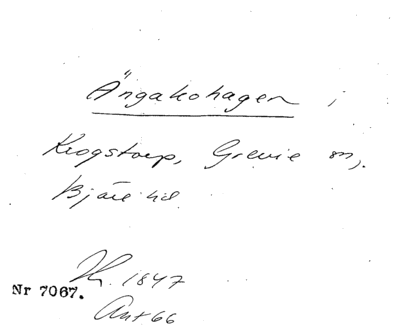 Ängakohagen i
Krogstorp, Grevie sn,
Bjäre hd.
Th. 1847
Nr 7067.
Ant 66